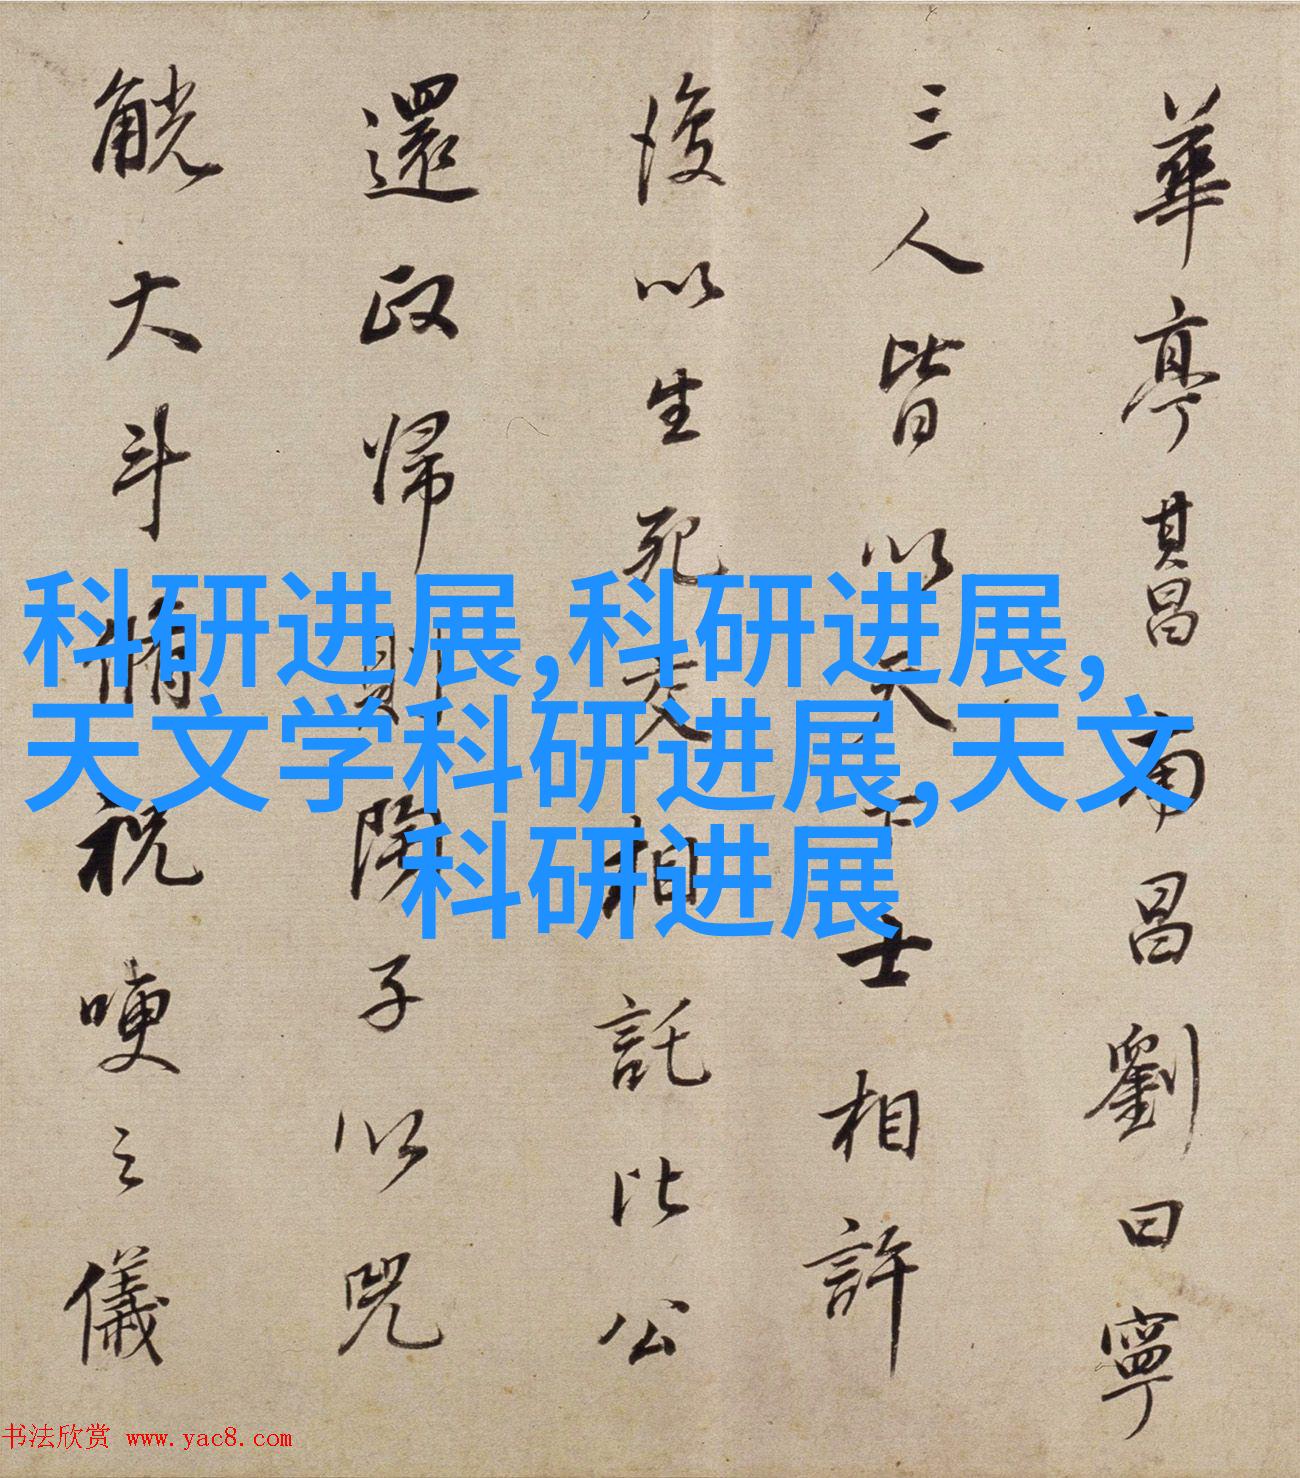 華亭其昌南昌劉曰寧
三人皆以天下士相許
後以生死交相託比公
還政歸則子以兕
觥大斗脩祝哽之儀
科研进展,科研进展,
天文学科研进展,天文
科研进展
书法欣赏 www.yac8.com